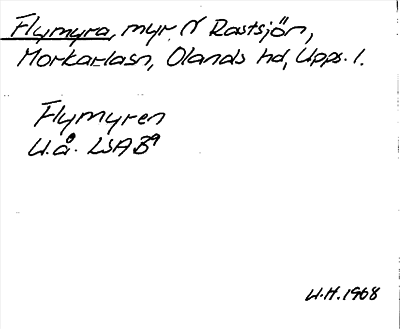 Flymyra, myr N Rastsjön,
Morkarlasn, Olands hd, Upps. l.
Flymyren
U.å. LSA B9
U.H. 1968